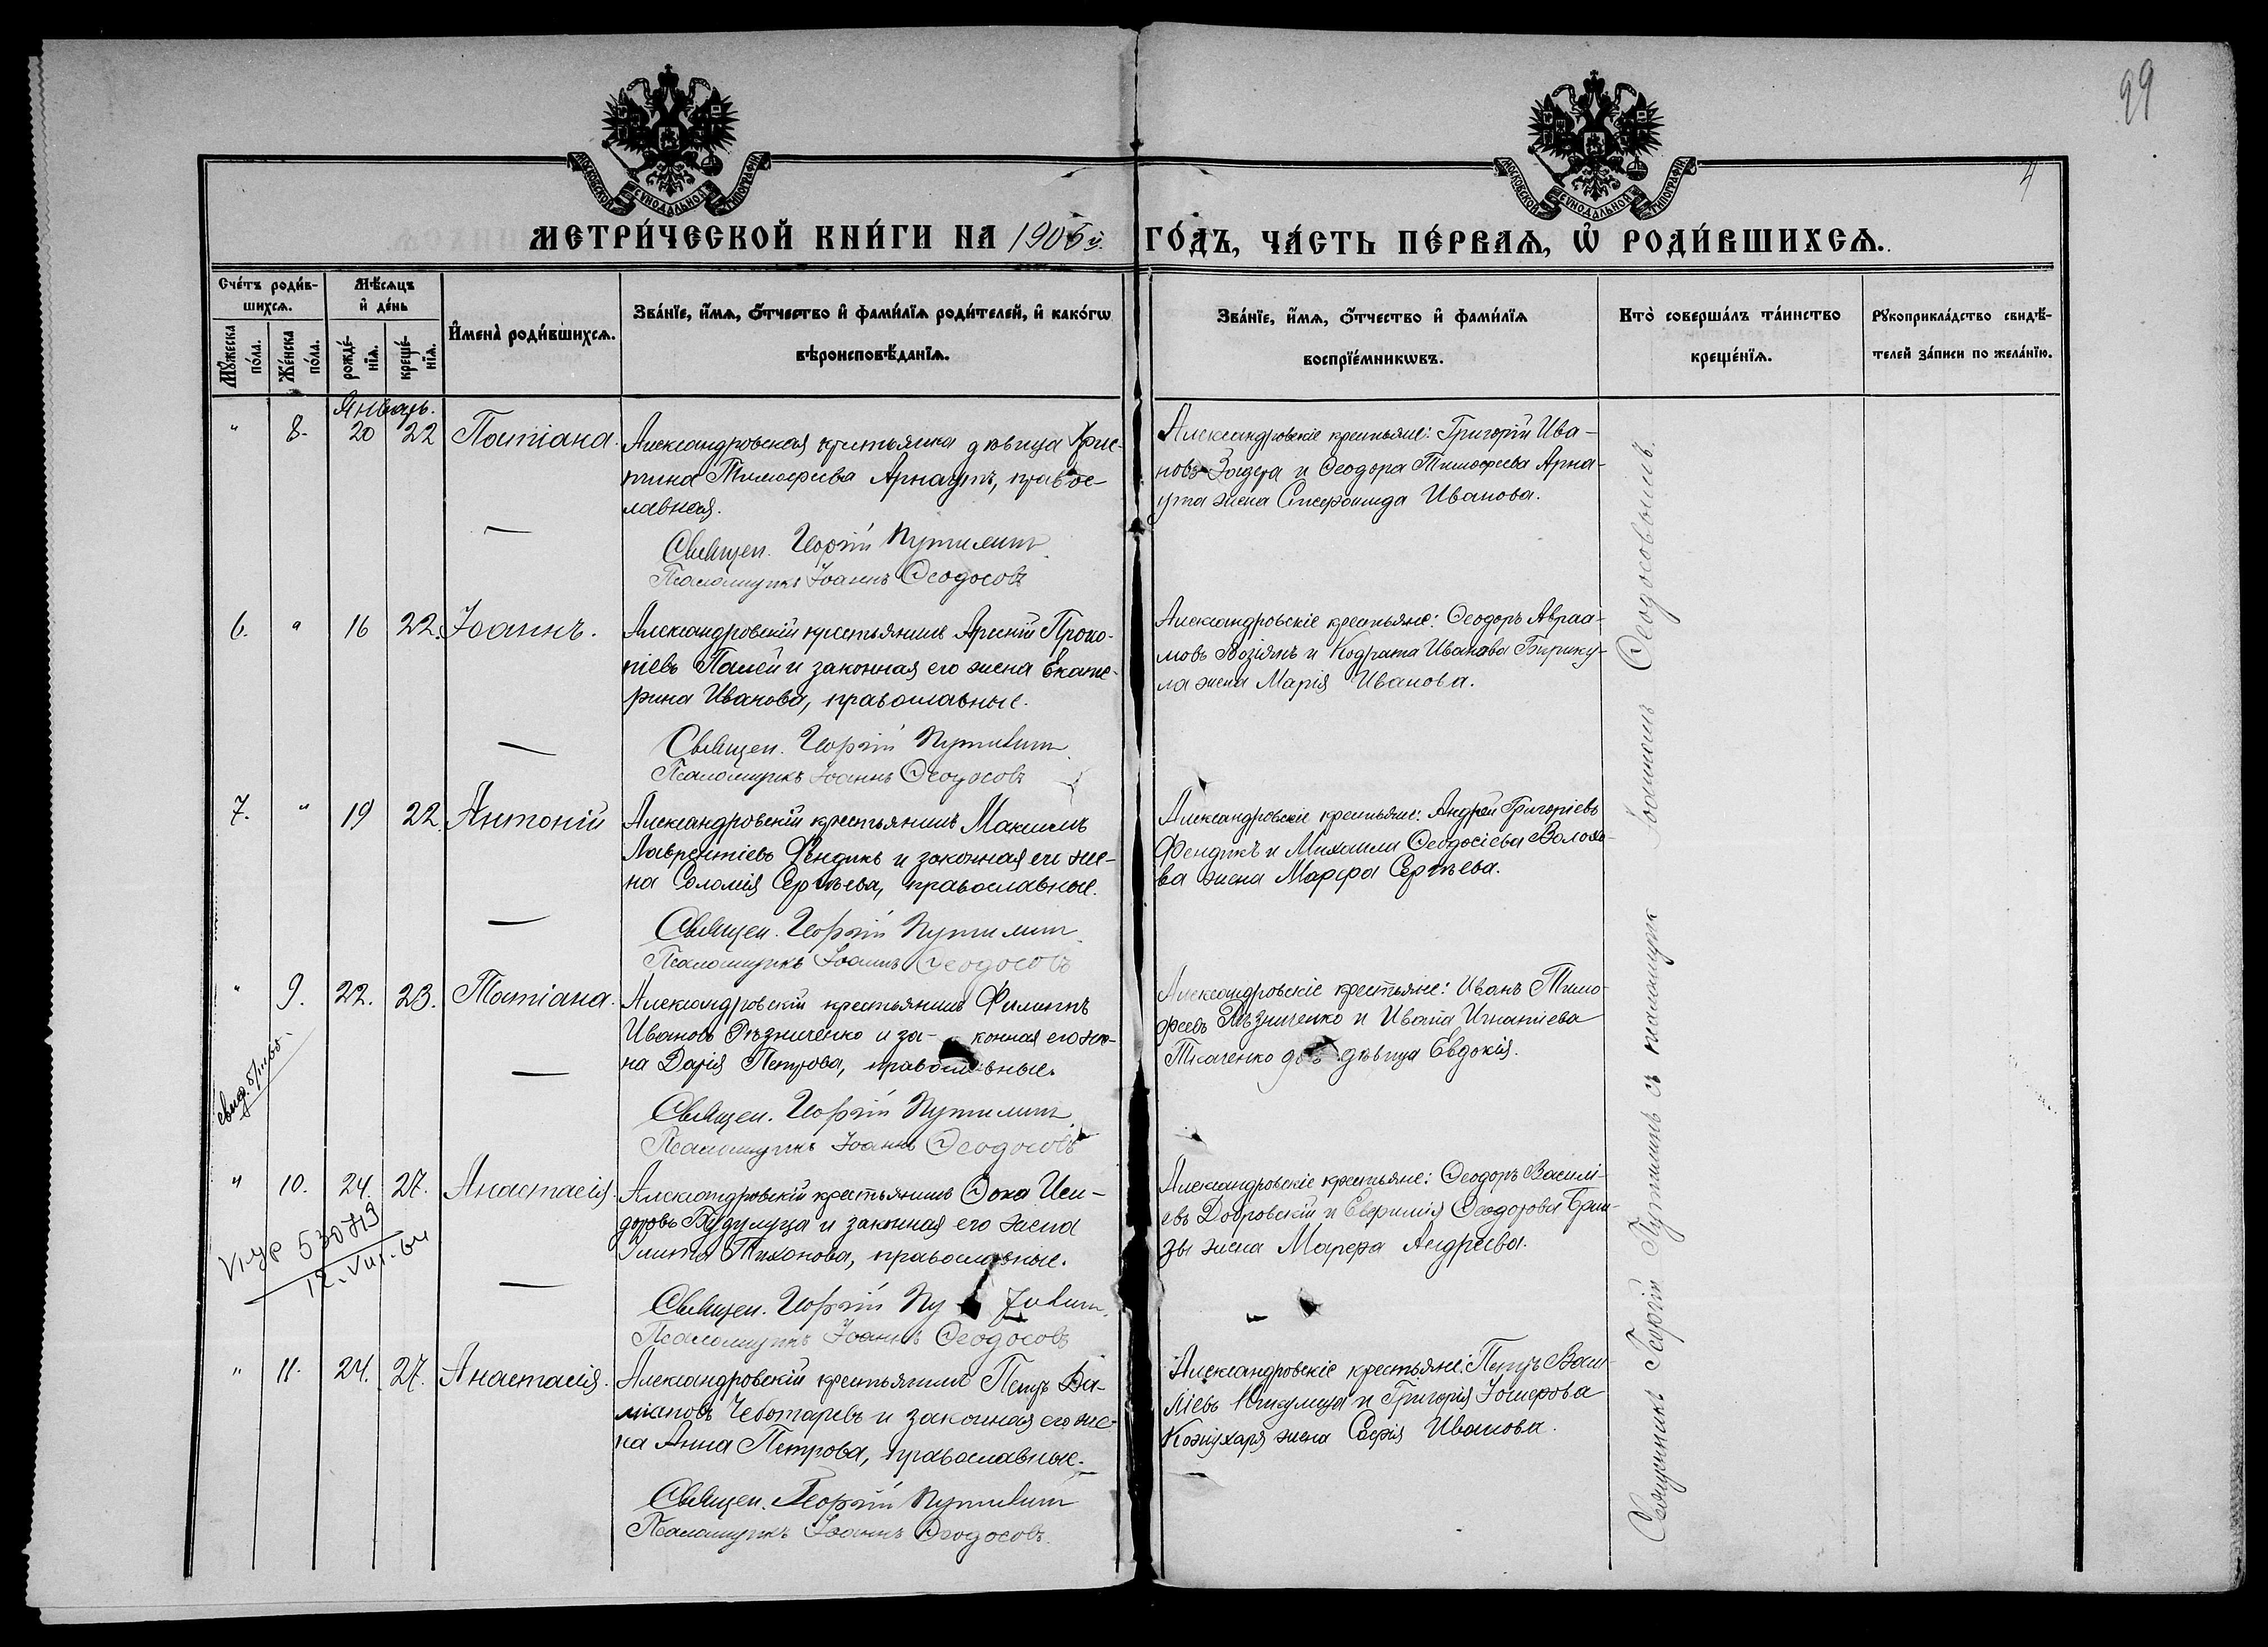 99
4
МОСКОВСКОЙ СѴНОДАЛЬНОЙ ТИПОГРАФІИ
МОСКОВСКОЙ СѴНОДАЛЬНОЙ ТИПОГРАФІИ
МЕТРИ́ЧЕСКОЙ КНИ́ГИ НА 1905 й ГО́ДЪ, ЧА́СТЬ ПЕ́РВАѦ, Ѡ҆ РОДИ́ВШИХСѦ.
Сче́тъ роди́в-
шихсѧ.
Мꙋ́жеска по́ла.
Же́нска по́ла.
Мѣ́сѧцъ
и҆ де́нь
рожде́-
нїѧ.
креще́-
нїѧ.
И҆мена̀ роди́вшихсѧ.
Зва́нїе, и҆́мѧ, ѻ҆́тчество и҆ фами́лїѧ роди́телей, и҆ како́гѡ
вѣроисповѣ́данїѧ.
Зва́нїе, и҆́мѧ, ѻ҆́тчество и҆ фами́лїѧ
воспрїе́мникѡвъ.
Кто̀ соверша́лъ та́инство
креще́нїѧ.
Рꙋкоприкла́дство свидѣ́-
телей за́писи по жела́нїю.
Январь.
" 8. 20 22 Татіана.
Александровская крестьянка дѣвица Хрис-
тина Тимоѳеева Арнаутъ, правос-
лавная.
Священ. Георгій Путилин
Псаломщикъ Іоаннъ Ѳеодосовъ
Александровскіе крестьяне: Григорій Ива-
новъ и Ѳеодора Тимоѳеева Арна-
ута жена Иванова.
6. " 16 22. Іоаннъ.
Александровскій крестьянинъ Арсеній Проко-
піевъ Палей и законная его жена Екате-
рина Иванова, православные.
Священ. Георгій Путилин
Псаломщикъ Іоаннъ Ѳеодосовъ
Александровскіе крестьяне: Ѳеодоръ Авраа-
мовъ Возіянъ и Кодрата Иванова Бирику-
ла жена Марія Иванова.
7. " 19 22. Антоній
Александровскій крестьянинъ Максимъ
Лаврентіевъ Фендикъ и законная его же-
на Соломія Сергѣева, православные.
Священ. Георгій Путилин
Псаломщикъ Іоаннъ Ѳеодосовъ
Александровскіе крестьяне: Андрей Григоріевъ
Фендикъ и Михаила Ѳеодосіева Волохо-
ва жена Марѳа Сергѣева.
" 9. 22. 23. Татіана.
Александровскій крестьянинъ Филиппъ
Ивановъ Рѣзниченко и за- конная его же-
на Дарія Петрова, православные.
Священ. Георгій Путилин
Псаломщикъ Іоаннъ Ѳеодосовъ
Александровскіе крестьяне: Иванъ Тимо-
ѳеевъ Рѣзниченко и Ивана Игнатіева
Ткаченко дѣвица Евдокія.
" 10. 24. 27. Анастасія.
530719
12.VIII.64
Александровскій крестьянинъ Ѳока Иси-
доровъ Будулуца и законная его жена
Тихонова, православные.
Священ. Георгій Путилин
Псаломщикъ Іоаннъ Ѳеодосовъ
Александровскіе крестьяне: Ѳеодоръ Василі-
евъ Добровскій и Евфимія Ѳеодорова
жена Марѳа Андреева.
" 11. 24. 27. Анастасія.
Александровскій крестьянинъ Петръ Да-
міановъ Чеботаревъ и законная его же-
на Анна Петрова, православные.
Священ. Георгій Путилин
Псаломщикъ Іоаннъ Ѳеодосовъ
Александровскіе крестьяне: Петръ Васи-
ліевъ и Григорія
Кожухаря жена Софія Иванова.
Священникъ Георгій Путилинъ съ псаломщик Іоанномъ Ѳеодосовымъ.